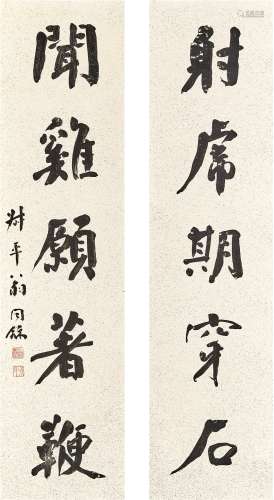 射虎期穿石
聞雞願著鞭
叔平翁同龢